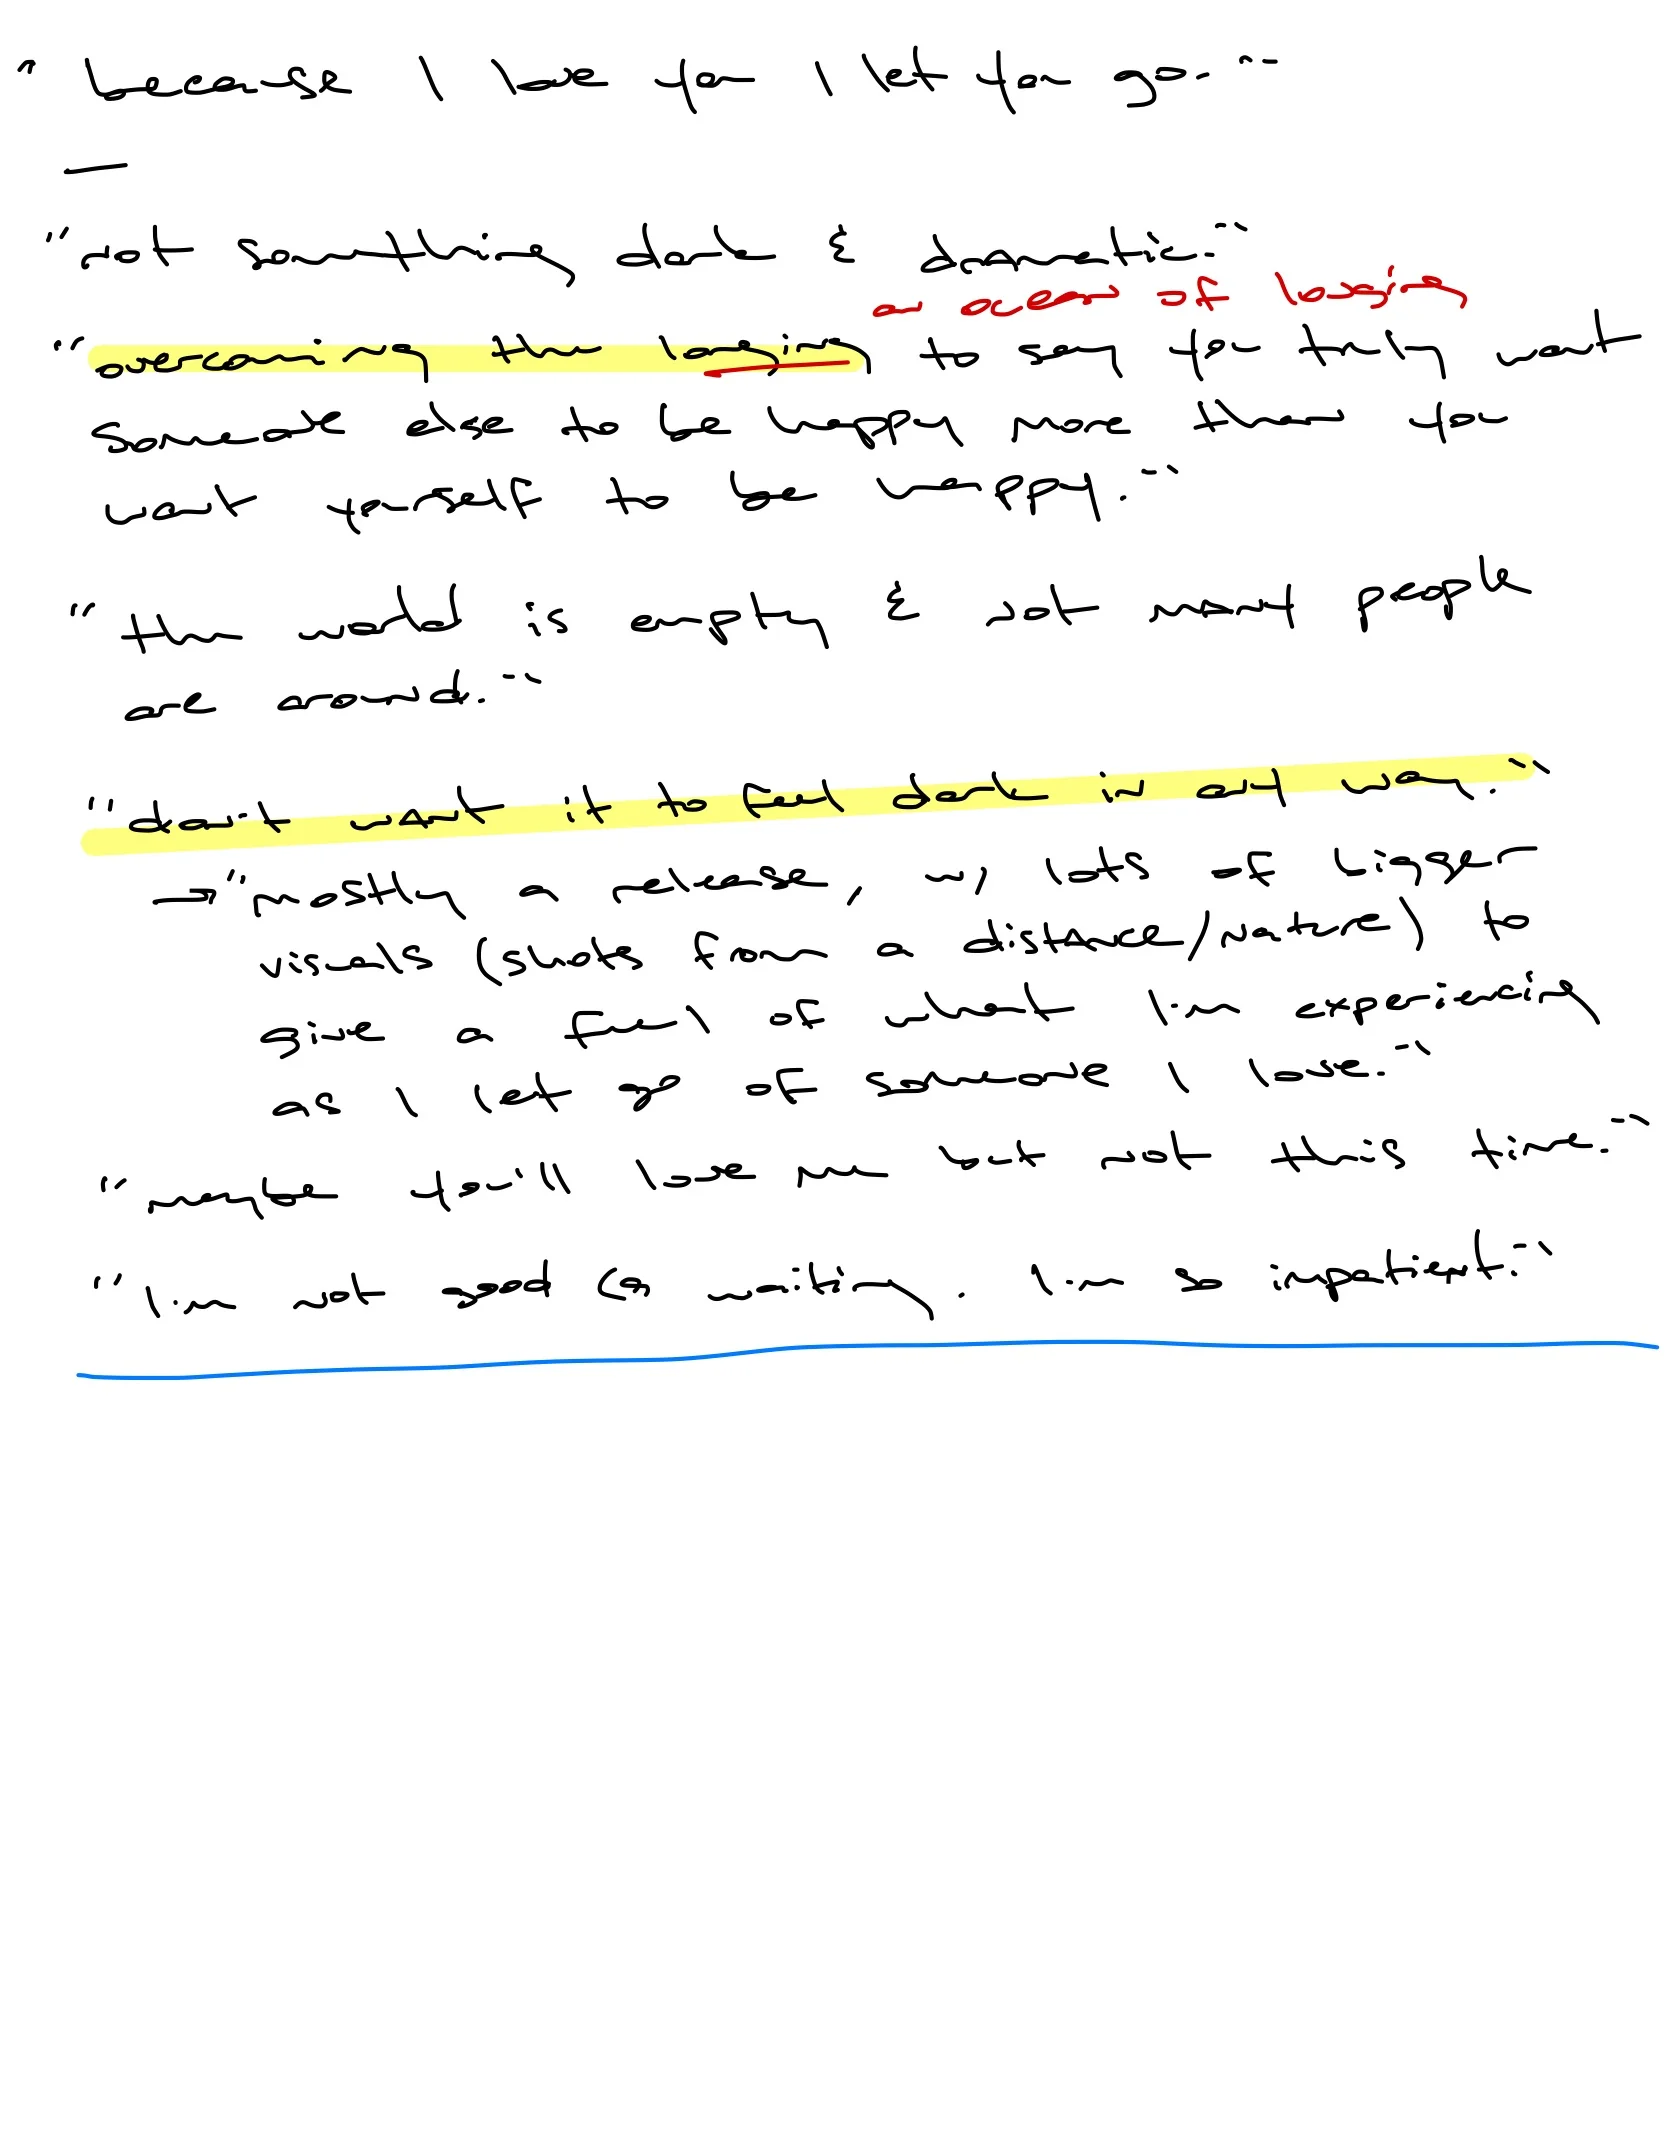 "because I love you I let you go."
—
"not something dark & dramatic."
an ocean of longing
"overcoming the longing to say you truly want
someone else to be happy more than you
want yourself to be happy."
"the world is empty & not many people
are around."
"don't want it to feel dark in any way."
→ "mostly a release, w/ lots of bigger
visuals (shots from a distance/nature) to
give a feel of what I'm experiencing
as I let go of someone I love."
"maybe you'll love me but not this time."
"I'm not good @ waiting. I'm so impatient."